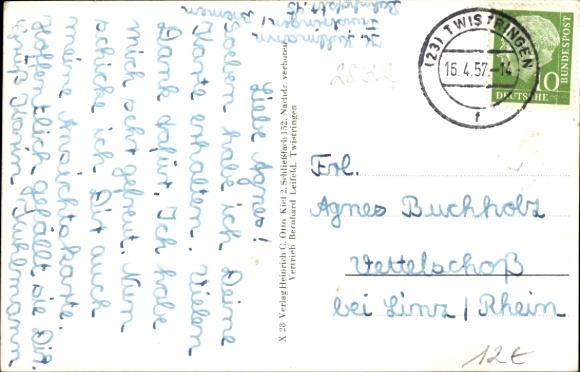 K. Juhlmann
Twistringen /
Bahnhofstr. 15
Bremen
Liebe Agnes!
Soeben habe ich Deine
Karte erhalten. Vielen
Dank dafür. Ich habe
mich sehr gefreut. Nun
schicke ich Dir auch
meine Ansichtskarte.
Hoffentlich gefällt sie Dir.
Gruß Karin Juhlmann
X 28 Verlag Heinrich C. Otto, Kiel 2, Schließfach 152. Nachdr. verboten
Vertrieb Bernhard Leifeld, Twistringen
2832
(23) TWISTRINGEN
15.4.57.-14
f
10
DEUTSCHE
BUNDESPOST
Frl.
Agnes Buchholz
Vettelschoß
bei Linz / Rhein.
12€